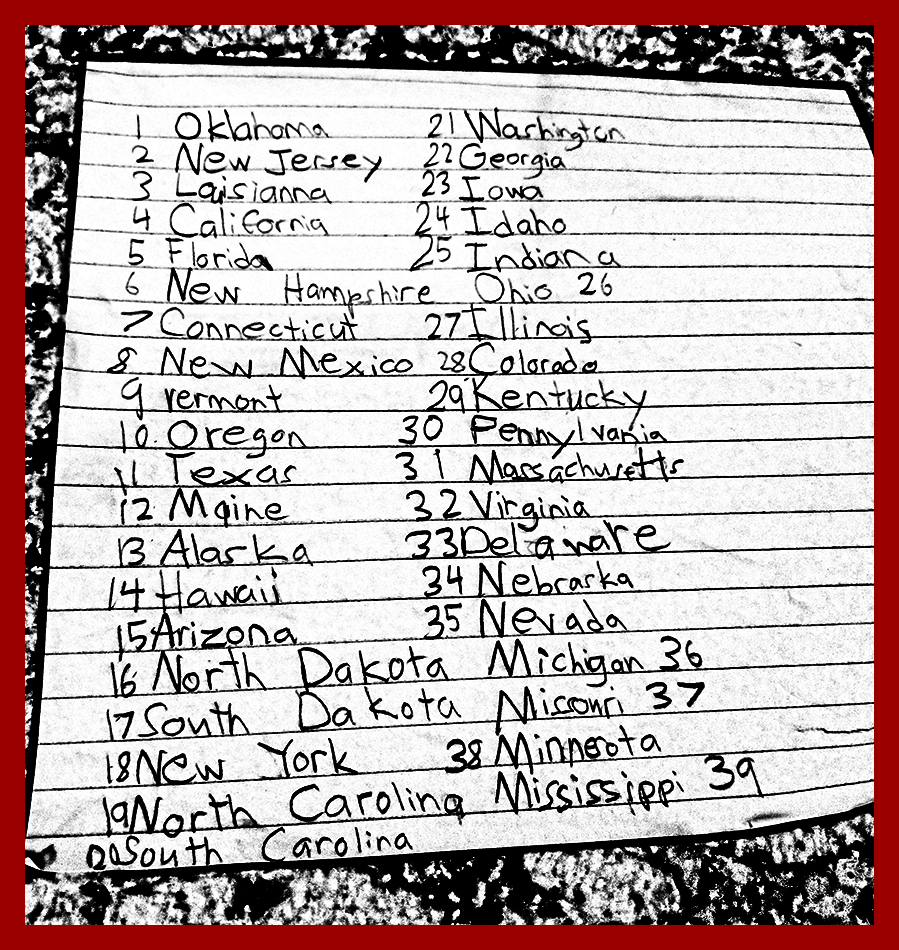 1 Oklahoma 21 Washington
2 New Jersey 22 Georgia
3 Laisianna 23 Iowa
4 California 24 Idaho
5 Florida 25 Indiana
6 New Hampshire Ohio 26
7 Connecticut 27 Illinois
8 New Mexico 28 Colorado
9 vermont 29 Kentucky
10. Oregon 30 Pennylvania
11 Texas 31 Massachusetts
12 Maine 32 Virginia
13 Alaska 33 Delaware
14 Hawaii 34 Nebraska
15 Arizona 35 Nevada
16 North Dakota Michigan 36
17 South Dakota Missouri 37
18 New York 38 Minnesota
19 North Carolina Mississippi 39
20 South Carolina